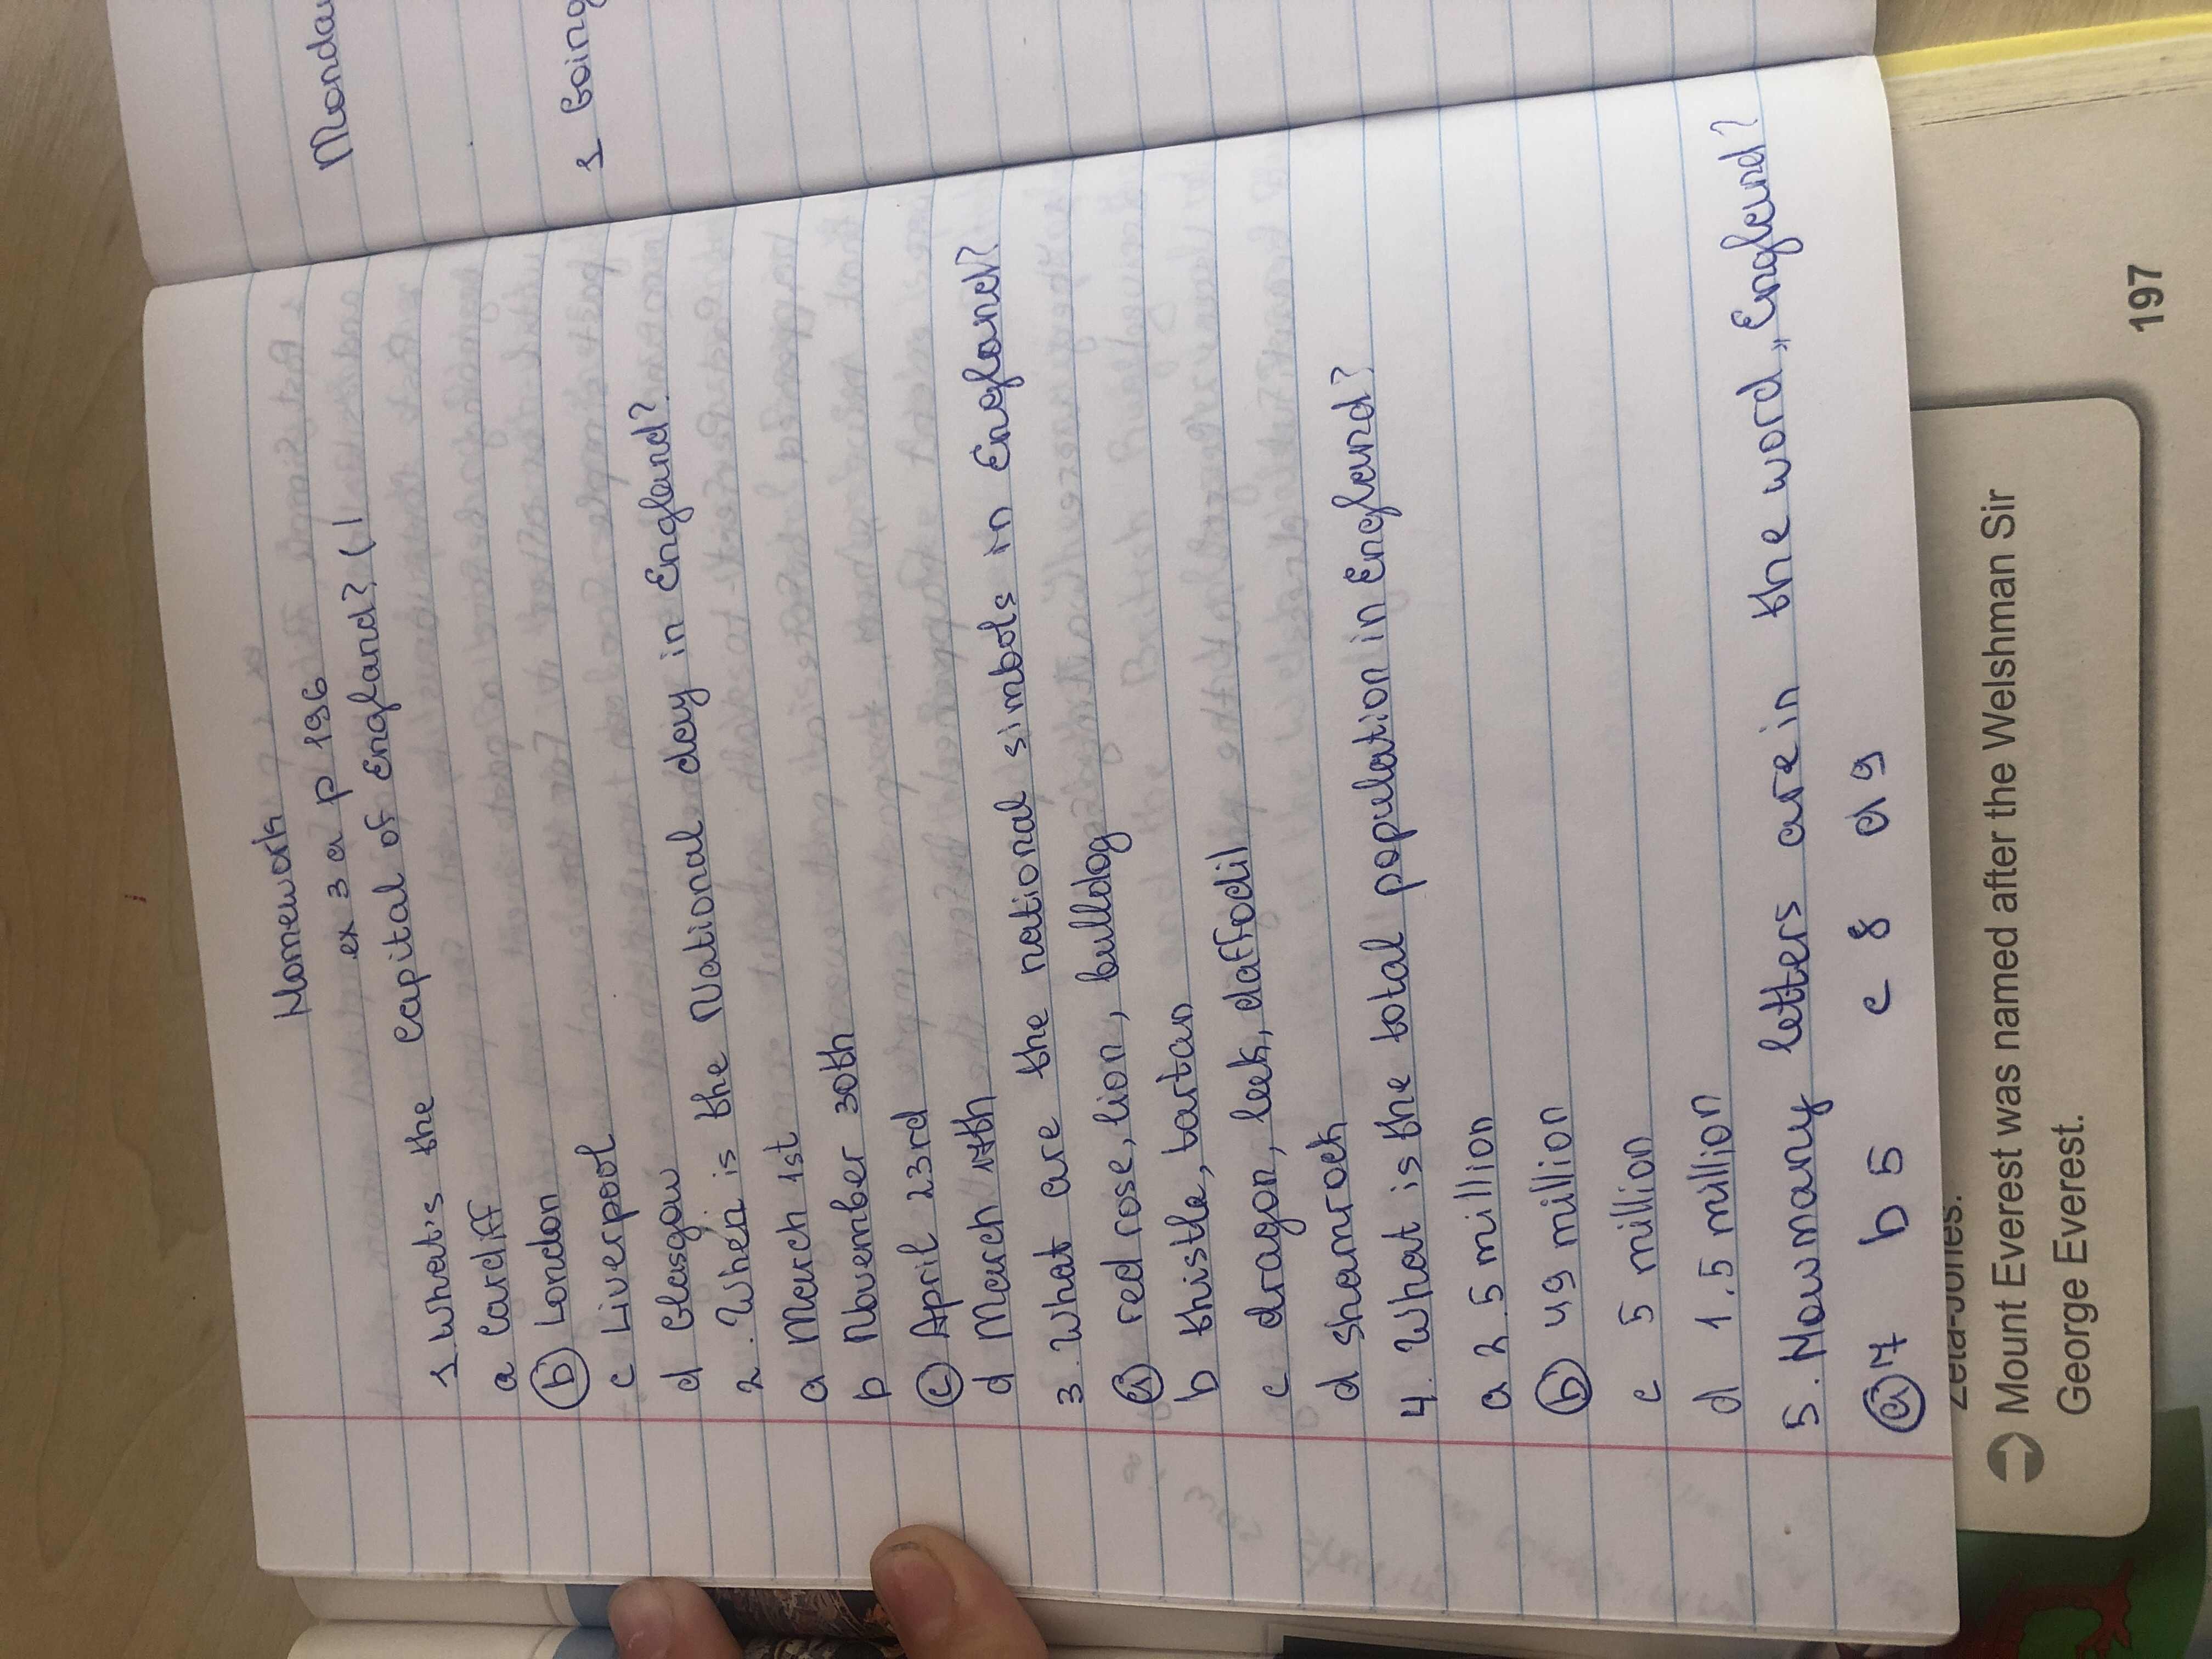 Homework
ex 3 a p 196
1. What's the capital of England?
a Cardiff
b London
c Liverpool
d Glasgow
2. When is the National day in England?
a March 1st
b November 30th
c April 23rd
d March 17th
3. What are the national simbols in England?
a red rose, lion, bulldog
b thistle, tartan
c dragon, leek, daffodil
d shamrock
4. What is the total population in England?
a 2.5 million
b 49 million
c 5 million
d 1.5 million
5. How many letters are in the word „England?
a 7 b 5 c 8 d 9
Monda
1 Going
Zeta-Jones.
Mount Everest was named after the Welshman Sir
George Everest.
197